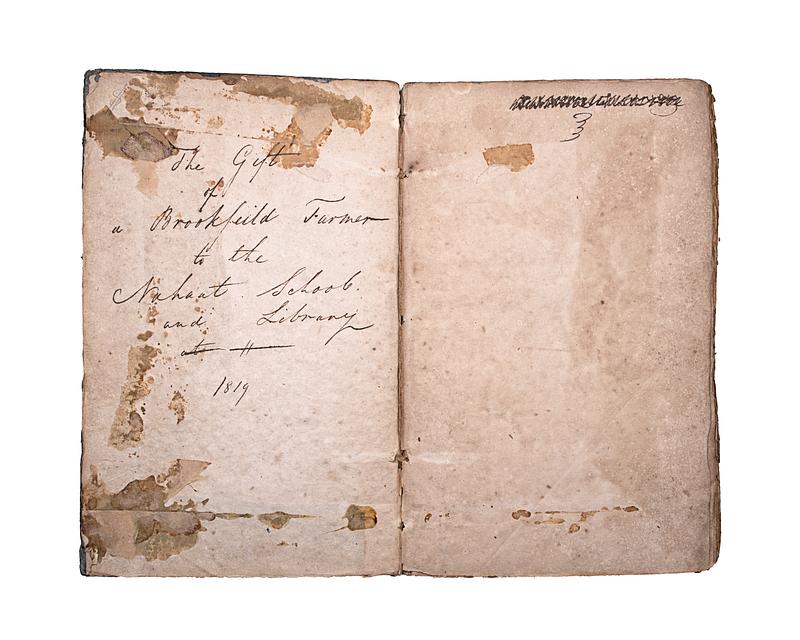 The Gift
of
a Brookfeild Farmer
to the
Nahant School
and Library
1819